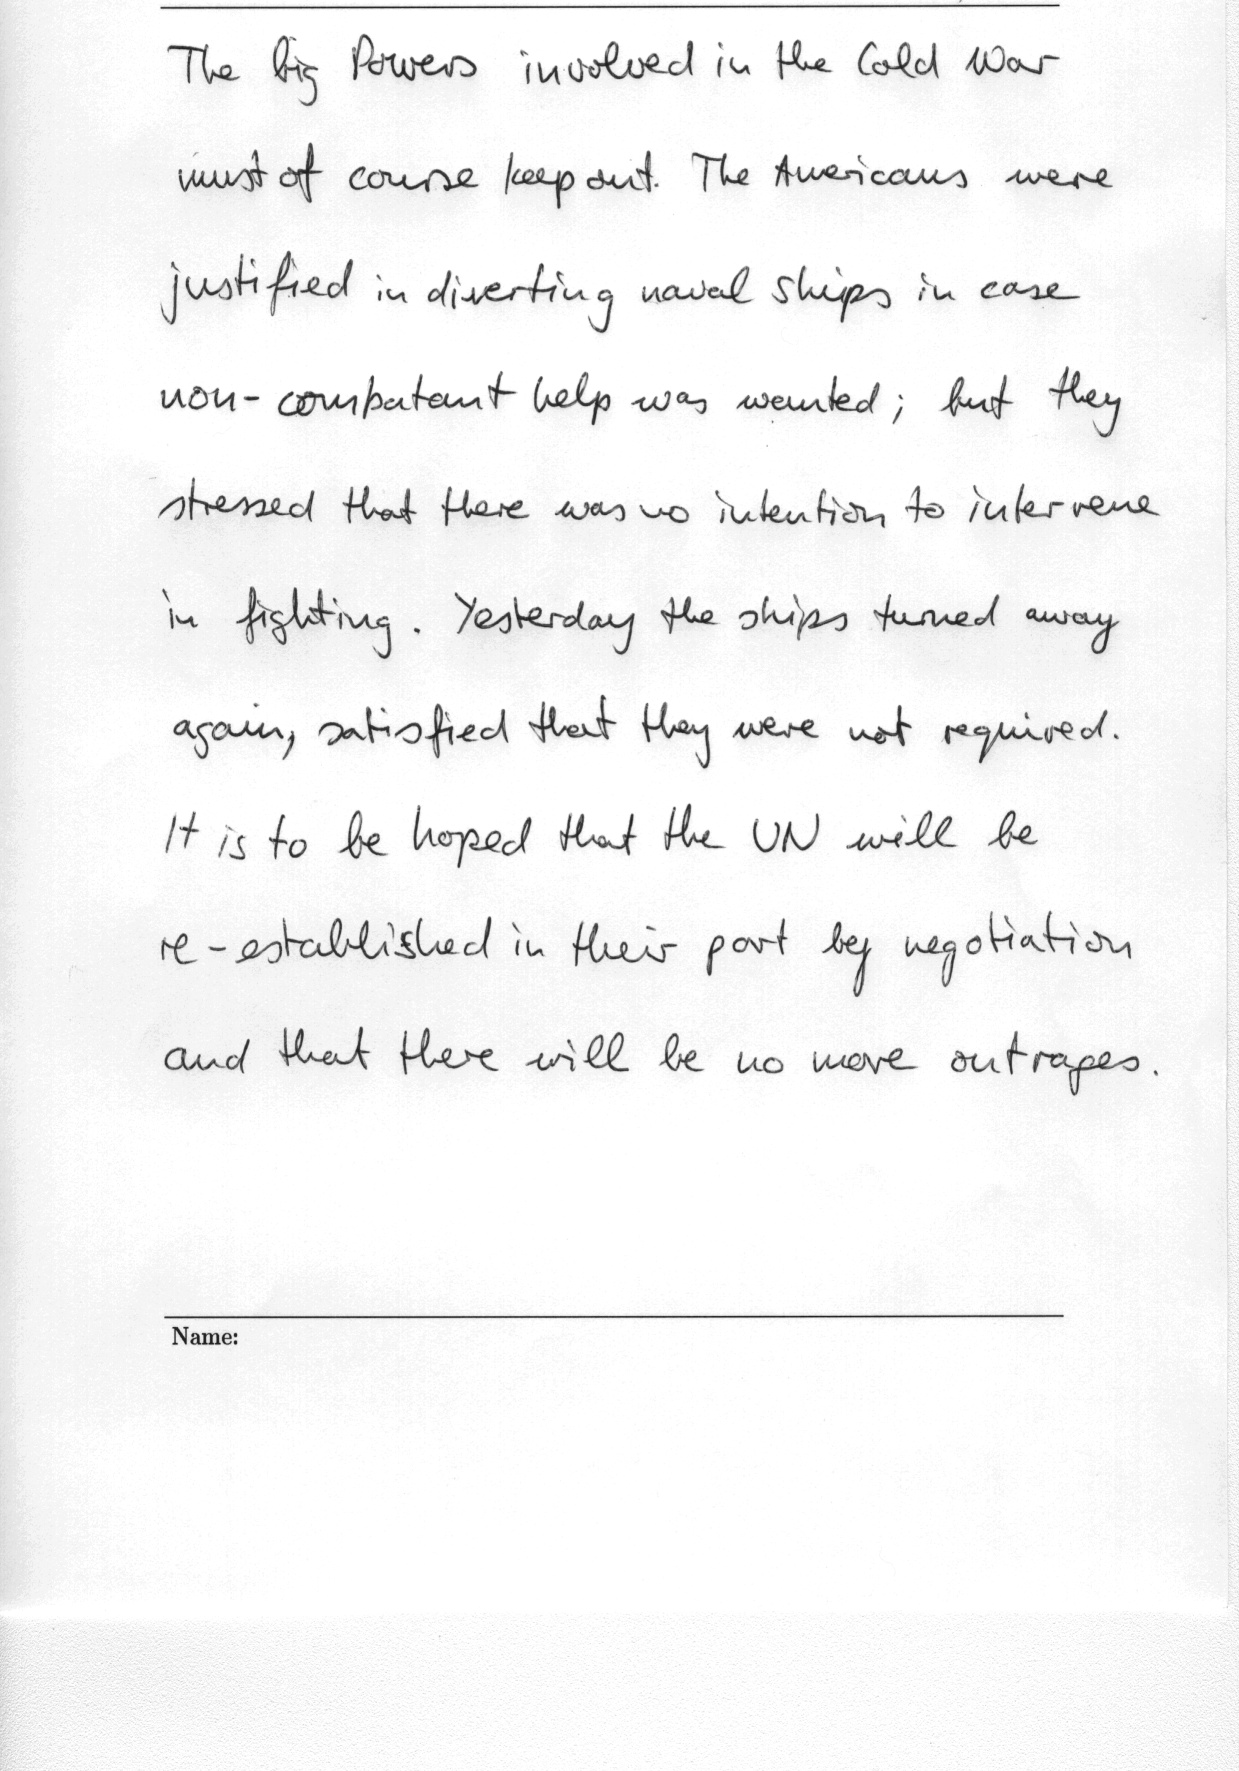 The big Powers involved in the Cold War
must of course keep out. The Americans were
justified in diverting naval ships in case
non-combatant help was wanted; but they
stressed that there was no intention to intervene
in fighting. Yesterday the ships turned away
again, satisfied that they were not required.
It is to be hoped that the UN will be
re-established in their port by negotiation
and that there will be no more outrages.
Name: